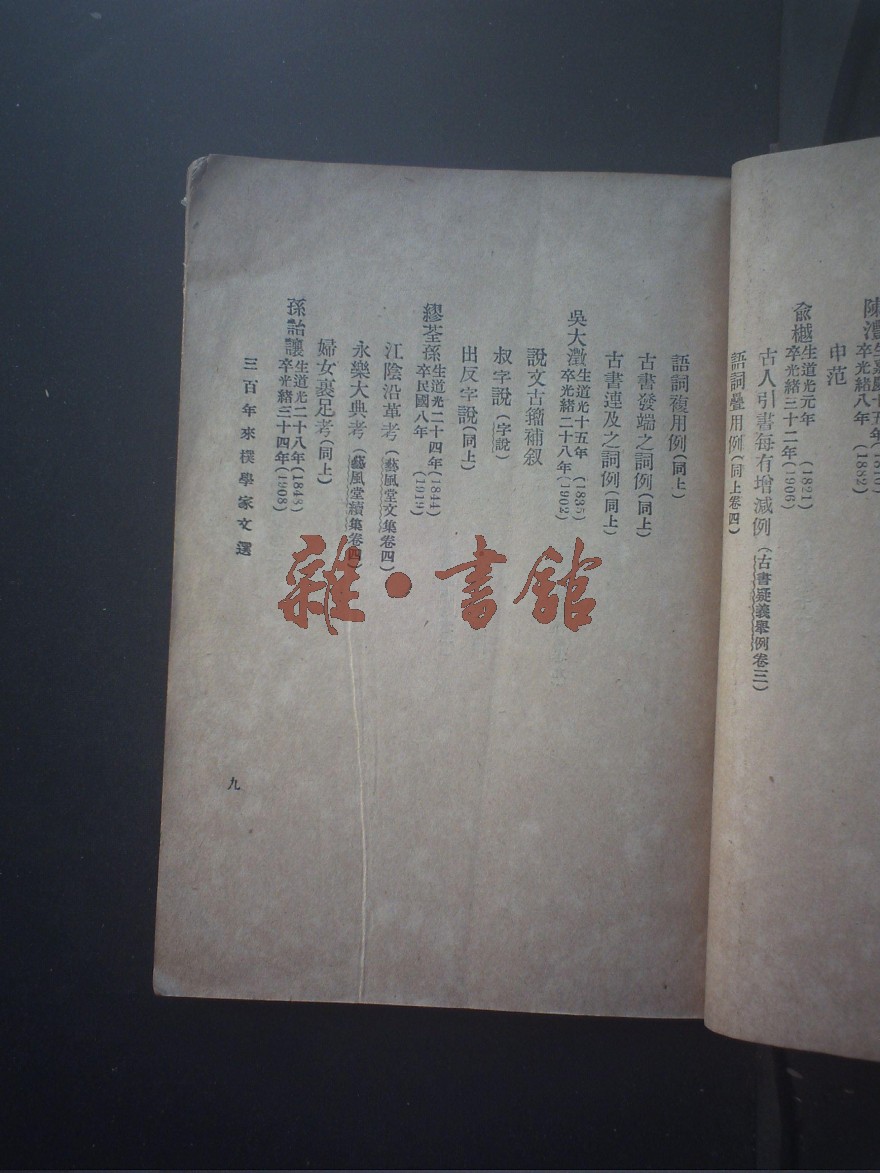 陳澧生嘉慶十五年(1810)
卒光緒八年(1882)
申范
俞樾生道光元年(1821)
卒光緒三十二年(1906)
古人引書每有增減例(古書疑義舉例卷三)
語詞疊用例(同上卷四)
語詞複用例(同上)
古書發端之詞例(同上)
古書連及之詞例(同上)
吳大澂生道光十五年(1835)
卒光緒二十八年(1902)
說文古籀補叙
叔字說(字說)
出反字說(同上)
繆荃孫生道光二十四年(1844)
卒民國八年(1919)
江陰沿革考(藝風堂文集卷四)
永樂大典考(藝風堂續集卷四)
婦女裹足考(同上)
孫詒讓生道光二十八年(1848)
卒光緒三十四年(1908)
三百年來樸學家文選
九
雜·書館